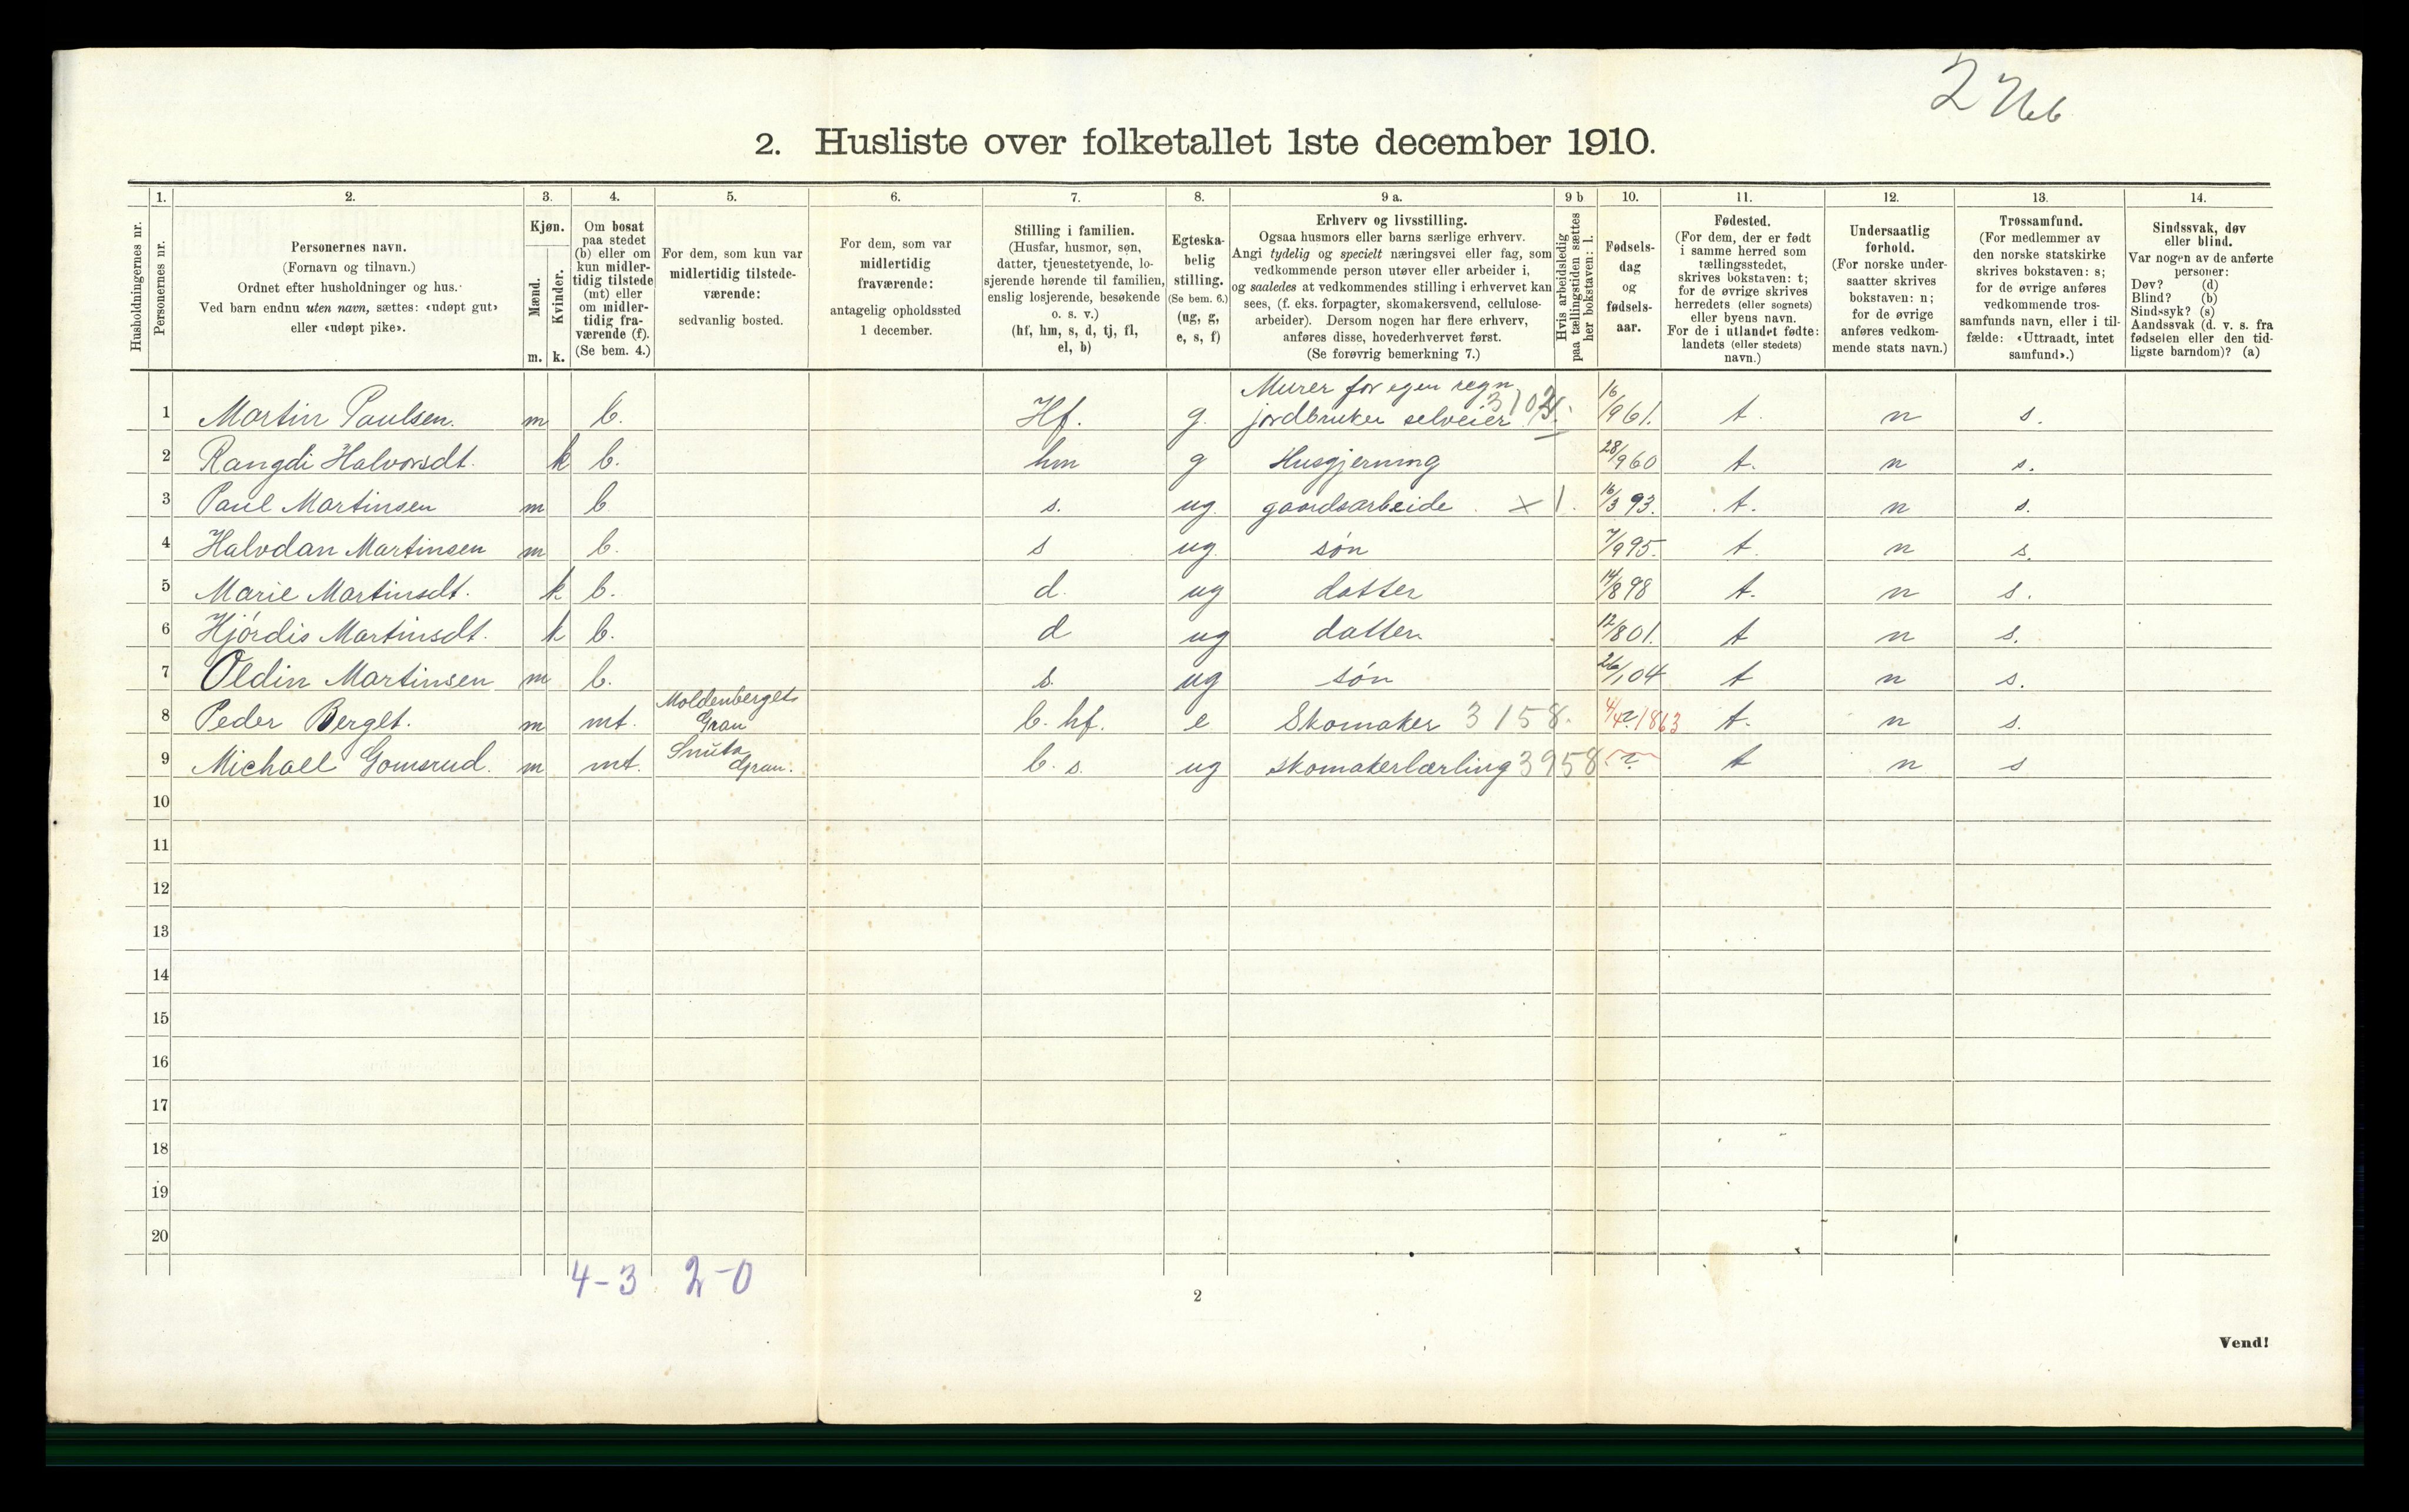 2. Husliste over folketallet 1ste december 1910.
1. 2. 3. 4. 5. 6. 7. 8. 9 a. 9 b 10. 11. 12. 13. 14.
Husholdningernes nr.
Personernes nr.
Personernes navn.
(Fornavn og tilnavn.)
Ordnet efter husholdninger og hus.
Ved barn endnu uten navn, sættes: «udøpt gut»
eller «udøpt pike».
Kjøn.
Mænd.
Kvinder.
m. k.
Om bosat
paa stedet
(b) eller om
kun midler-
tidig tilstede
(mt) eller
om midler-
tidig fra-
værende (f).
(Se bem. 4.)
For dem, som kun var
midlertidig tilstede-
værende:
sedvanlig bosted.
For dem, som var
midlertidig
fraværende:
antagelig opholdssted
1 december.
Stilling i familien.
(Husfar, husmor, søn,
datter, tjenestetyende, lo-
sjerende hørende til familien,
enslig losjerende, besøkende
o. s. v.)
(hf, hm, s, d, tj, fl,
el, b)
Egteska-
belig
stilling.
(Se bem. 6.)
(ug, g,
e, s, f)
Erhverv og livsstilling.
Ogsaa husmors eller barns særlige erhverv.
Angi tydelig og specielt næringsvei eller fag, som
vedkommende person utøver eller arbeider i,
og saaledes at vedkommendes stilling i erhvervet kan
sees, (f. eks. forpagter, skomakersvend, cellulose-
arbeider). Dersom nogen har flere erhverv,
anføres disse, hovederhvervet først.
(Se forøvrig bemerkning 7.)
Hvis arbeidsledig
paa tællingstiden sættes
her bokstaven: l.
Fødsels-
dag
og
fødsels-
aar.
Fødested.
(For dem, der er født
i samme herred som
tællingsstedet,
skrives bokstaven: t;
for de øvrige skrives
herredets (eller sognets)
eller byens navn.
For de i utlandet fødte:
landets (eller stedets)
navn.)
Undersaatlig
forhold.
(For norske under-
saatter skrives
bokstaven: n;
for de øvrige
anføres vedkom-
mende stats navn.)
Trossamfund.
(For medlemmer av
den norske statskirke
skrives bokstaven: s;
for de øvrige anføres
vedkommende tros-
samfunds navn, eller i til-
fælde: «Uttraadt, intet
samfund».)
Sindssvak, døv
eller blind.
Var nogen av de anførte
personer:
Døv? (d)
Blind? (b)
Sindssyk? (s)
Aandssvak (d. v. s. fra
fødselen eller den tid-
ligste barndom)? (a)
Murer for egen regn
1 Martin Paulsen. m b. Hf. g. jordbruker selveier 16/9 61. t. n s.
2 Rangdi Halvorsdt. k b. hm g Husgjerning 28/9 60 t. n s.
3 Paul Martinsen m b s. ug. gaardsarbeide x 1. 16/3 93. t. n s.
4 Halvdan Martinsen m b. s ug søn 7/9 95. t. n s.
5 Marie Martinsdt. k b. d. ug datter 14/8 98 t. n s.
6 Hjórdis Martinsdt. k b. d ug datter 12/8 01. t n s.
7 Oldin Martinsen m b. s. ug són 26/1 04 t n s.
Moldenberget
8 Peder Berget. m mt. Gran b. hf. e Skomaker 3158. 4/4 1863 t. n s.
Snuta
9 Michael Gomsrud. m mt. Gran. b. s. ug skomakerlærling 3958 ? t n s
10
11
12
13
14
15
16
17
18
19
20
4-3 2-0
2
Vend!